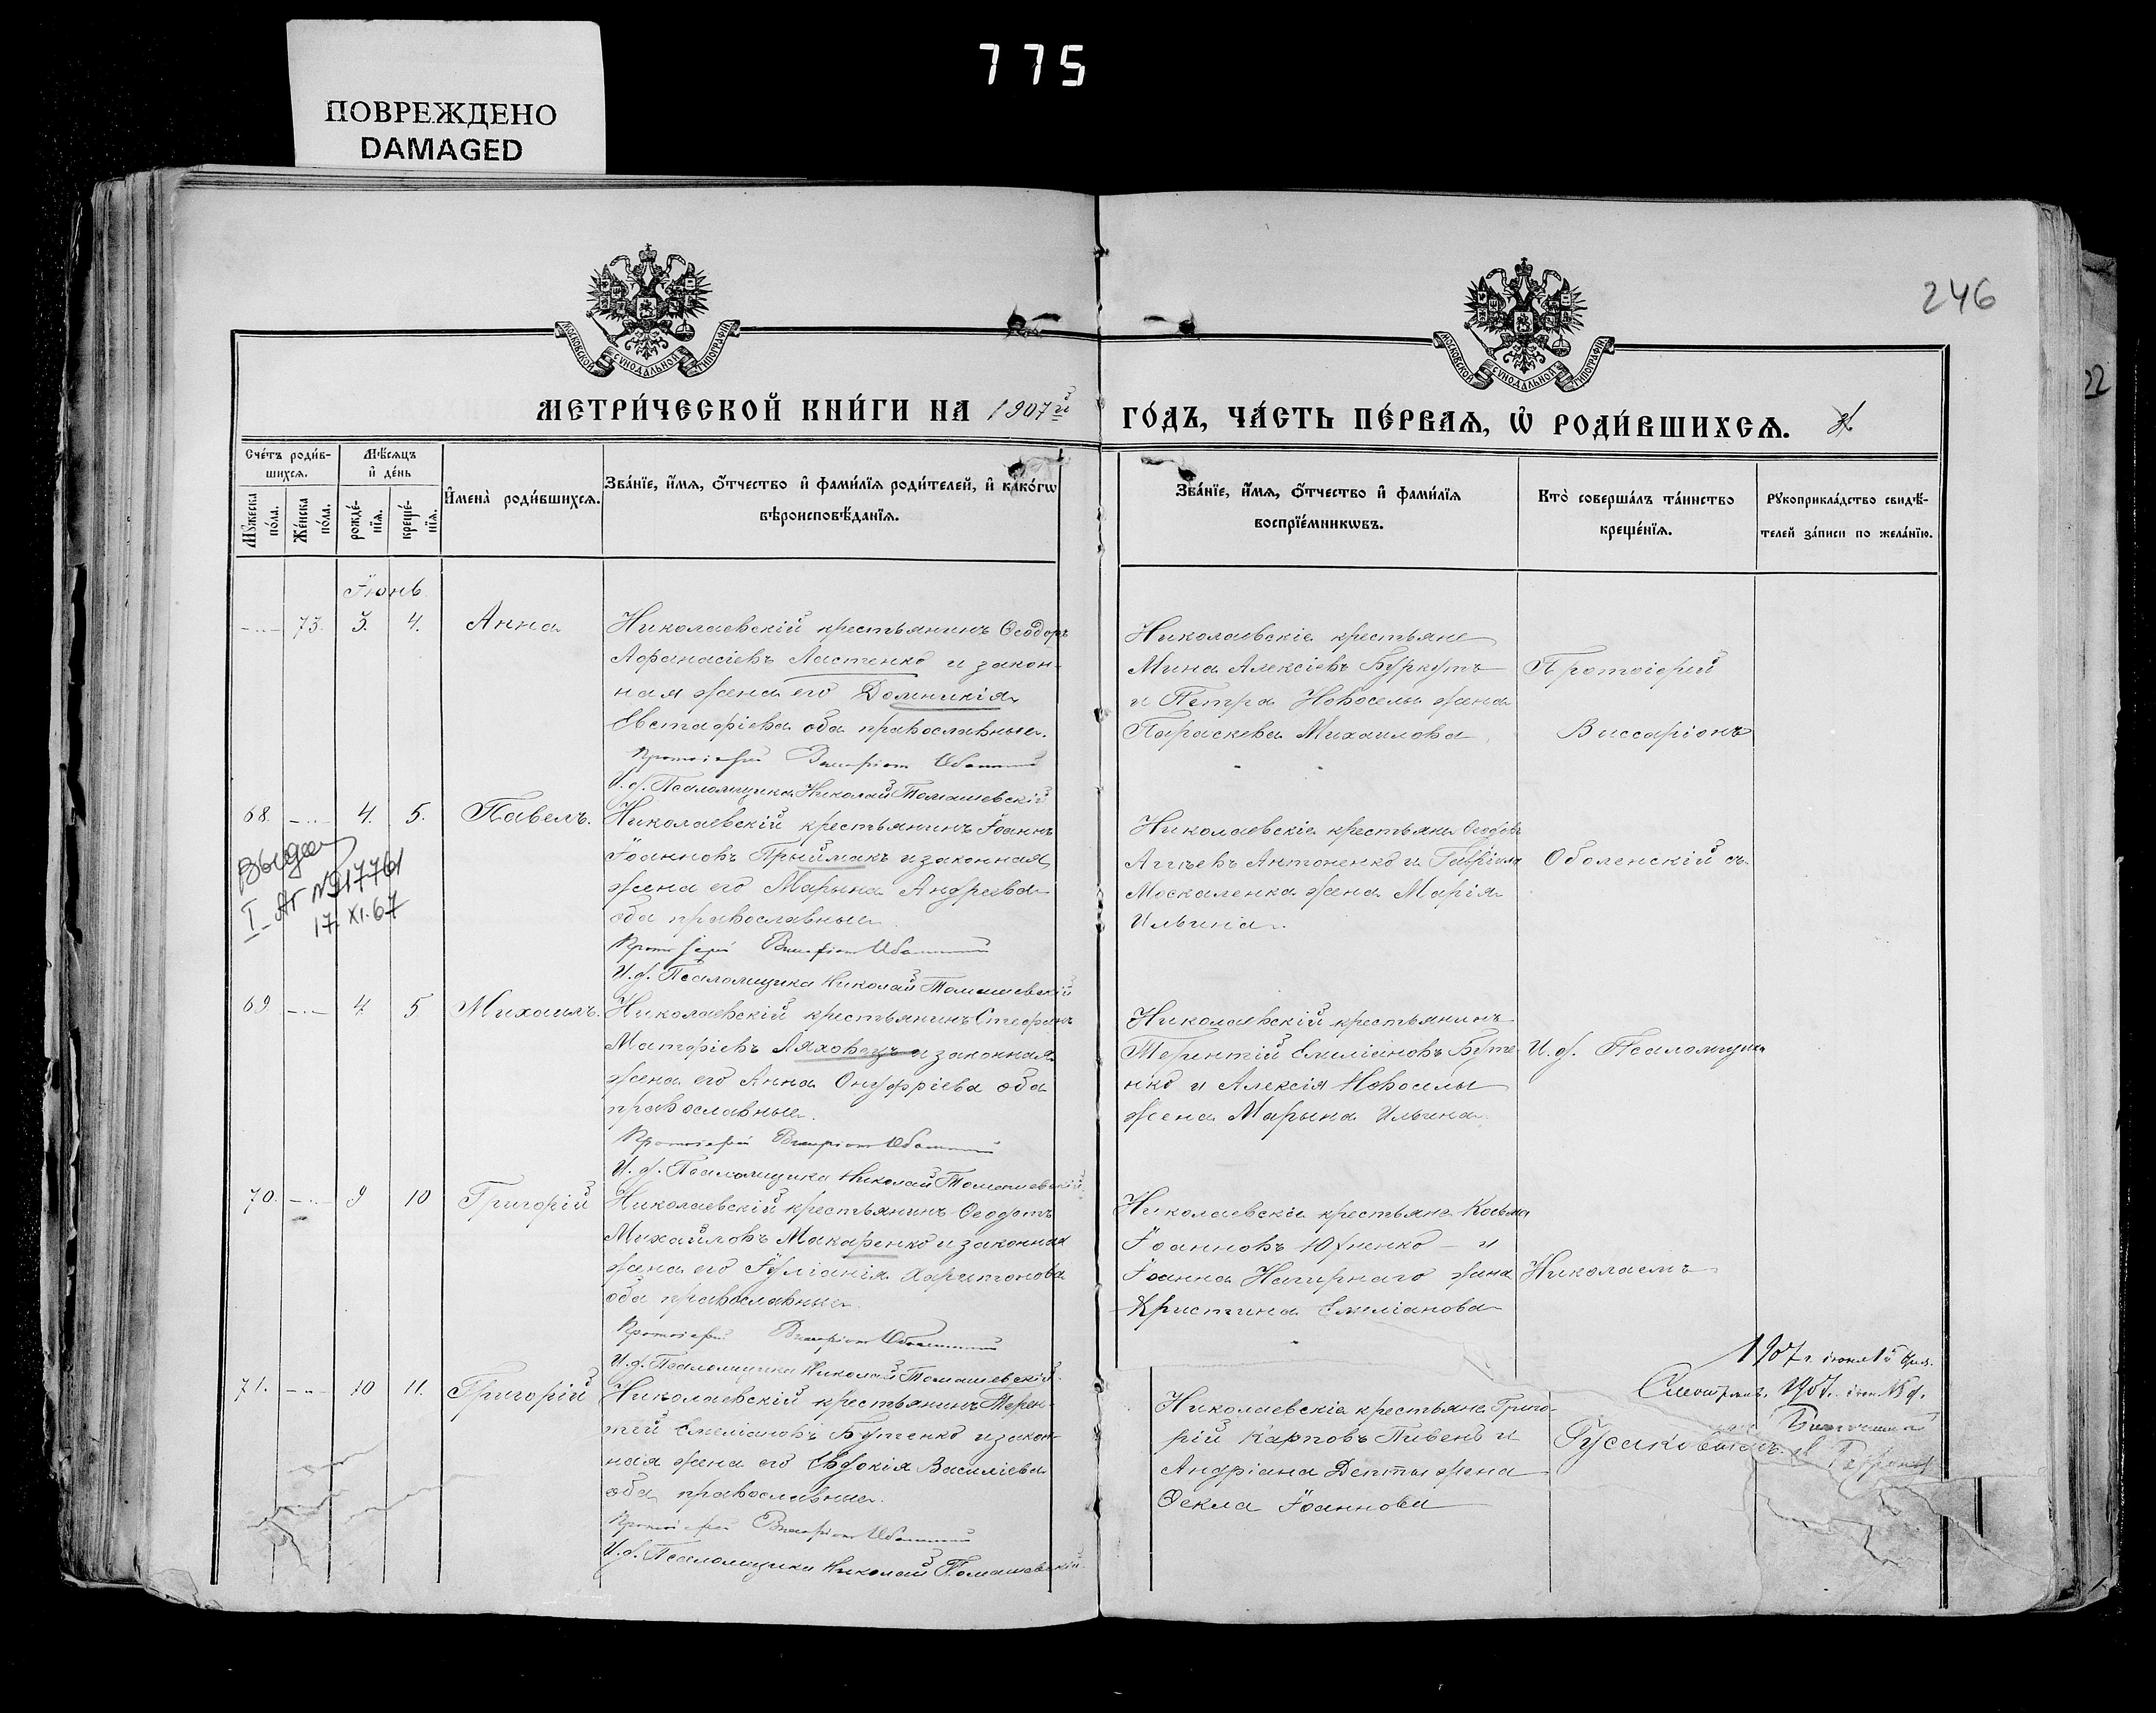 775
ПОВРЕЖДЕНО
DAMAGED
246
22
МОСКОВСКОЙ СѴНОДАЛЬНОЙ ТИПОГРАФІИ
МОСКОВСКОЙ СѴНОДАЛЬНОЙ ТИПОГРАФІИ
МЕТРИ́ЧЕСКОЙ КНИ́ГИ НА 1907й
ГО́ДЪ, ЧА́СТЬ ПЕ́РВАѦ, Ѡ҆ РОДИ́ВШИХСѦ.
Сче́тъ роди́в-
шихсѧ.
Мꙋ́жеска
по́ла.
Же́нска
по́ла.
Мѣ́сѧцъ
и҆ де́нь
рожде́-
нїѧ.
креще́-
нїѧ.
И҆мена̀ роди́вшихсѧ.
Зва́нїе, и҆́мѧ, ѻ҆́тчество и҆ фами́лїѧ роди́телей, и҆ како́гѡ
вѣроисповѣ́данїѧ.
Зва́нїе, и҆́мѧ, ѻ҆́тчество и҆ фами́лїѧ
воспрїе́мникѡвъ.
Кто̀ соверша́лъ та́инство
креще́нїѧ.
Рꙋкоприкла́дство свидѣ́-
телей за́писи по жела́нїю.
Іюнь
73. 3. 4. Анна
Николаевскій крестьянинъ Ѳеодоръ
Афанасіевъ Ластенко и закон-
ная жена его Домникія
Евстафіева оба православные.
Протоіерей Виссаріонъ Оболенскій
И. д. Псаломщика Николай Томашевскій
Николаевскіе крестьяне
Мина Алексіевъ Буркутъ
и Петра Новоселы жена
Параскева Михаилова
68. 4. 5. Павелъ.
Николаевскій крестьянинъ Іоаннъ
Іоанновъ Прыймакъ и законная
жена его Марына Андреева
оба православные
Протоіерей Виссаріонъ Оболенскій
И. д. Псаломщика Николай Томашевскій
Николаевскіе крестьяне Ѳеодоръ
Аггѣевъ Антоненко и Гавріила
Москаленка жена Марія
Ильина.
Выдан
I-АГ №217761
17. XI. 67
69. 4. 5 Михаилъ.
Николаевскій крестьянинъ Стефанъ
Матфіевъ Ляховецъ и законная
жена его Анна Онуфріева оба
православные.
Протоіерей Виссаріонъ Оболенскій
И. д. Псаломщика Николай Томашевскій
Николаевскій крестьянинъ
Терентій Емеліановъ Буте-
нко и Алексія Новоселы
жена Марына Ильина.
70. 9 10 Григорій
Николаевскій крестьянинъ Ѳеодотъ
Михаиловъ Макаренко и законная
жена его Іуліанія Харитонова
оба православные.
Протоіерей Виссаріонъ Оболенскій
И. д. Псаломщика Николай Томашевскій
Николаевскіе крестьяне Косьма
Іоанновъ Юхненко - и
Іоанна Нагирнаго жена
Христина Емеліанова
71. 10 11. Григорій
Николаевскій крестьянинъ Терен-
тій Емеліановъ Бутенко и закон-
ная жена его Евдокія Василіева
оба православные.
Протоіерей Виссаріонъ Оболенскій
И. д. Псаломщика Николай Томашевскій
Николаевскіе крестьяне Григо-
рій Карповъ Пивень и
Андріана Депты жена
Ѳекла Іоаннова
Протоіерей
Виссаріонъ
Оболенскій съ
И. д. Псаломщика
Николаемъ
Гусаковскимъ.
1907 г. іюня 15 дня.
Смотрѣлъ. 1907 г.